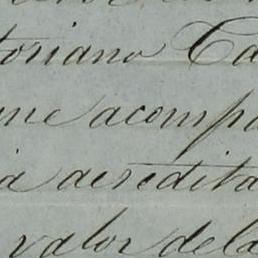 toriano Ca
me acompa
a acredita
valor dela